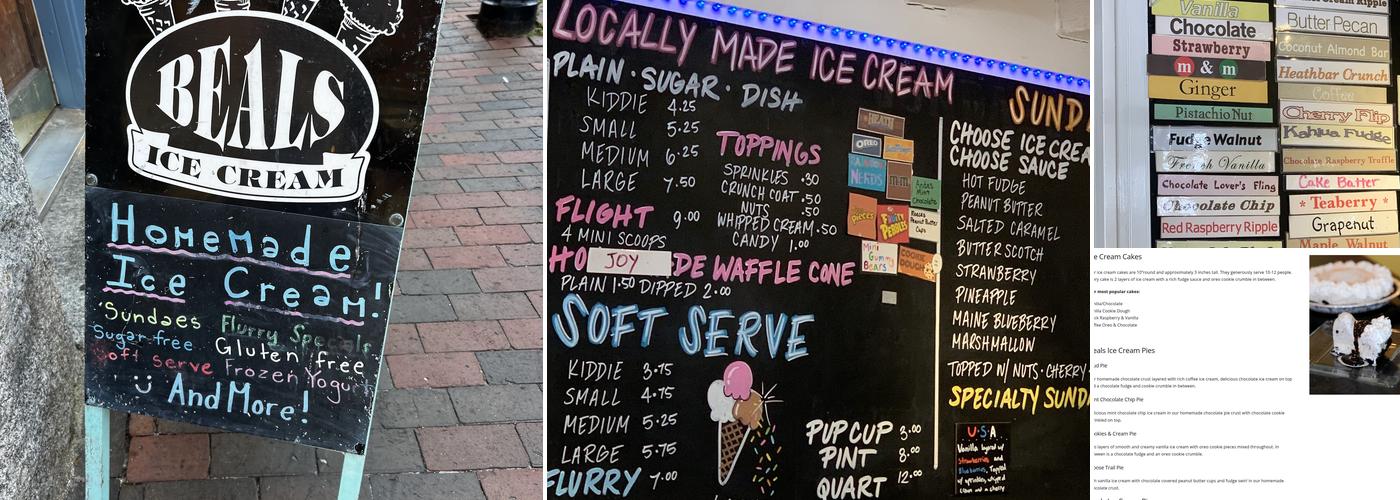 BEALS
ICE CREAM
Homemade
Ice Cream!
Sundaes Flurry Specials
Sugar-free Gluten free
Soft serve Frozen Yogu
And More!
LOCALLY MADE ICE CREAM
PLAIN · SUGAR · DISH
KIDDIE 4.25
SMALL 5.25
MEDIUM 6.25
LARGE 7.50
TOPPINGS
SPRINKLES .30
CRUNCH COAT .50
NUTS .50
WHIPPED CREAM .50
CANDY 1.00
HEATH
OREO
RAINBOW
NERDS
m·m
Andes
Mint
Chocolate
pieces
FRUITY
PEBBLES
Reeses
Peanut Butter
Cups
Mini
Gummy
Bears
COOKIE
DOUGH
FLIGHT 9.00
4 MINI SCOOPS
HO JOY DE WAFFLE CONE
PLAIN 1.50 DIPPED 2.00
SOFT SERVE
KIDDIE 3.75
SMALL 4.75
MEDIUM 5.25
LARGE 5.75
FLURRY 7.00
PUP CUP 3.00
PINT 8.00
QUART 12.00
SUND
CHOOSE ICE CREA
CHOOSE SAUCE
HOT FUDGE
PEANUT BUTTER
SALTED CARAMEL
BUTTERSCOTCH
STRAWBERRY
PINEAPPLE
MAINE BLUEBERRY
MARSHMALLOW
TOPPED W/ NUTS · CHERRY
SPECIALTY SUND
U·S·A
Vanilla layered w/
Strawberries and
Blueberries, Topped
w/ sprinkles, whipped
cream and a cherry
Vanilla
Chocolate
Strawberry
m & m
Ginger
Pistachio Nut
Fudge Walnut
French Vanilla
Chocolate Lover's Fling
Chocolate Chip
Red Raspberry Ripple
Cream Ripple
Butter Pecan
Coconut Almond Bar
Heathbar Crunch
Coffee
Cherry Flip
Kahlua Fudge
Chocolate Raspberry Truffle
Cake Batter
* Teaberry *
Grapenut
Maple Walnut
e Cream Cakes
r ice cream cakes are 10"round and approximately 3 inches tall. They generously serve 10-12 people.
ry cake is 2 layers of ice cream with a rich fudge sauce and oreo cookie crumble in between.
r most popular cakes:
nilla/Chocolate
nilla Cookie Dough
ck Raspberry & Vanilla
ffee Oreo & Chocolate
eals Ice Cream Pies
ud Pie
r homemade chocolate crust layered with rich coffee ice cream, delicious chocolate ice cream on top
d a chocolate fudge and cookie crumble in between.
nt Chocolate Chip Pie
licious mint chocolate chip ice cream in our homemade chocolate pie crust with chocolate cookie
inkled on top.
okies & Cream Pie
o layers of smooth and creamy vanilla ice cream with oreo cookie pieces mixed throughout. In
ween is a chocolate fudge and an oreo cookie crumble.
oose Trail Pie
h vanilla ice cream with chocolate covered peanut butter cups and fudge swirl in our homemade
ocolate crust.